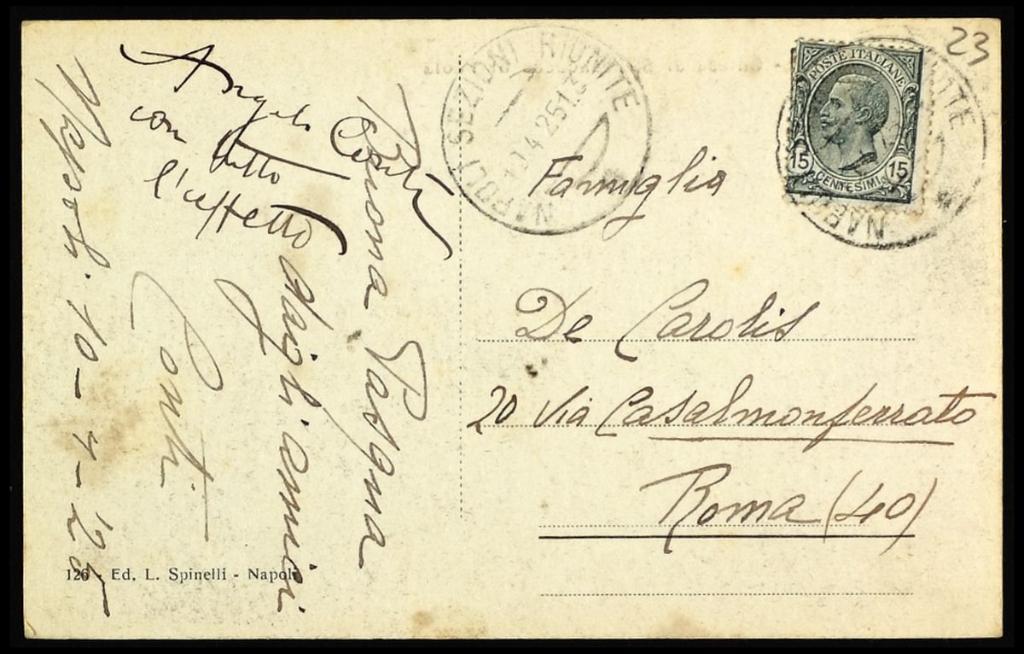 Buona Pasqua
dagli amici
Conti
Napoli. 10-4-'25
Angela Conti
con tutto
l'affetto
NAPOLI SEZIONI RIUNITE
4.25
23
POSTE ITALIANE
15 15
CENTESIMI
Famiglia
De Carolis
20 Via Casalmonferrato
Roma (40)
126 - Ed. L. Spinelli - Napoli